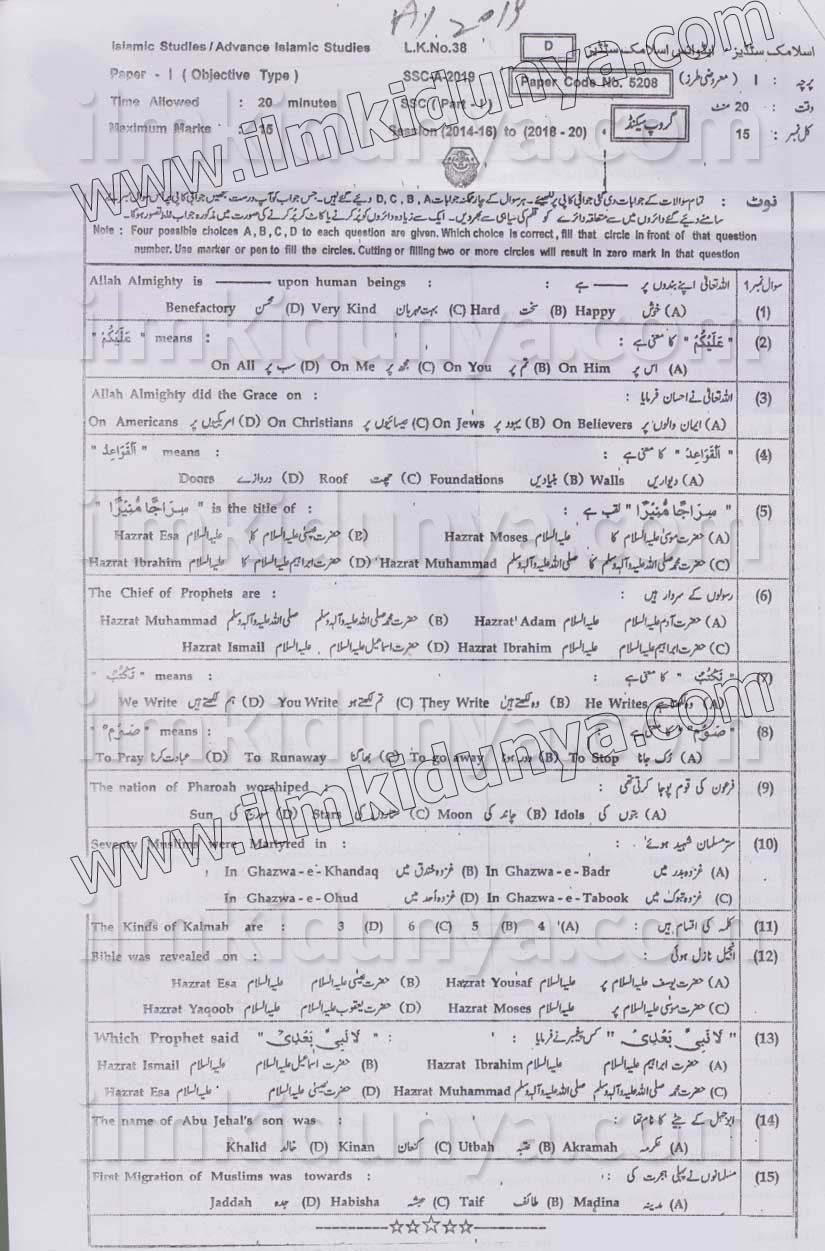 A1. 2019
Islamic Studies / Advance Islamic Studies L.K.No.38 D اسلامک سٹڈیز / ایڈوانس اسلامک سٹڈیز
Paper - I ( Objective Type ) SSC-A-2019 Paper Code No. 5208 پرچہ : I ( معروضی طرز )
Time Allowed : 20 minutes SSC (Part - I) وقت : 20 منٹ
Maximum Marks : 15 Session (2014-16) to (2018 - 20) گروپ سیکنڈ کل نمبر : 15
نوٹ : تمام سوالات کے جوابات دی گئی جوابی کاپی پر لکھیئے ۔ ہر سوال کے چار ممکنہ جوابات D, C, B, A دیئے گئے ہیں ۔ جس جواب کو آپ درست سمجھیں جوابی کاپی پر اس سوال نمبر کے
سامنے دیئے گئے دائروں میں سے متعلقہ دائرے کو قلم کی سیاہی سے بھر دیں ۔ ایک سے زیادہ دائروں کو پُر کرنے یا کاٹ کر پُر کرنے کی صورت میں مذکورہ جواب غلط تصور ہوگا ۔
Note : Four possible choices A, B, C, D to each question are given. Which choice is correct, fill that circle in front of that question
number. Use marker or pen to fill the circles. Cutting or filling two or more circles will result in zero mark in that question
Allah Almighty is ——— upon human beings : : اللہ تعالیٰ اپنے بندوں پر ——— ہے سوال نمبر 1
Benefactory محسن (D) Very Kind بہت مہربان (C) Hard سخت (B) Happy خوش (A) (1)
" عَلَیْکُمْ " means : : " عَلَیْکُمْ " کا معنی ہے (2)
On All سب پر (D) On Me مجھ پر (C) On You تم پر (B) On Him اس پر (A)
Allah Almighty did the Grace on : : اللہ تعالیٰ نے احسان فرمایا (3)
On Americans امریکیوں پر (D) On Christians عیسائیوں پر (C) On Jews یہود پر (B) On Believers ایمان والوں پر (A)
" اَلْقَوَاعِدُ " means : : " اَلْقَوَاعِدُ " کا معنی ہے (4)
Doors دروازے (D) Roof چھت (C) Foundations بنیادیں (B) Walls دیواریں (A)
" سِرَاجًا مُّنِیْرًا " is the title of : : " سِرَاجًا مُّنِیْرًا " لقب ہے (5)
Hazrat Esa حضرت عیسیٰ علیہ السلام کا (B) Hazrat Moses حضرت موسیٰ علیہ السلام کا (A)
Hazrat Ibrahim حضرت ابراہیم علیہ السلام کا (D) Hazrat Muhammad حضرت محمد صلی اللہ علیہ وآلہ وسلم کا (C)
The Chief of Prophets are : : رسولوں کے سردار ہیں (6)
Hazrat Muhammad حضرت محمد صلی اللہ علیہ وآلہ وسلم (B) Hazrat Adam حضرت آدم علیہ السلام (A)
Hazrat Ismail حضرت اسماعیل علیہ السلام (D) Hazrat Ibrahim حضرت ابراہیم علیہ السلام (C)
" نَکْتُبُ " means : : " نَکْتُبُ " کا معنی ہے (7)
We Write ہم لکھتے ہیں (D) You Write تم لکھتے ہو (C) They Write وہ لکھتے ہیں (B) He Writes وہ لکھتا ہے (A)
" صَوْمٌ " means : : " صَوْمٌ " کا معنی ہے (8)
To Pray عبادت کرنا (D) To Runaway بھاگنا (C) To go away دور ہونا (B) To Stop رُک جانا (A)
The nation of Pharoah worshiped : : فرعون کی قوم پوجا کرتی تھی (9)
Sun سورج کی (D) Stars ستاروں کی (C) Moon چاند کی (B) Idols بتوں کی (A)
Seventy Muslims were Martyred in : : ستر مسلمان شہید ہوئے (10)
In Ghazwa-e-Khandaq غزوہ خندق میں (B) In Ghazwa-e-Badr غزوہ بدر میں (A)
In Ghazwa-e-Ohud غزوہ اُحد میں (D) In Ghazwa-e-Tabook غزوہ تبوک میں (C)
The Kinds of Kalmah are : 3 (D) 6 (C) 5 (B) 4 (A) : کلمہ کی اقسام ہیں (11)
Bible was revealed on : : انجیل نازل ہوئی (12)
Hazrat Esa حضرت عیسیٰ علیہ السلام (B) Hazrat Yousaf حضرت یوسف علیہ السلام پر (A)
Hazrat Yaqoob حضرت یعقوب علیہ السلام (D) Hazrat Moses حضرت موسیٰ علیہ السلام پر (C)
Which Prophet said " لَا نَبِیَّ بَعْدِیْ " : : " لَا نَبِیَّ بَعْدِیْ " کس پیغمبر نے فرمایا (13)
Hazrat Ismail حضرت اسماعیل علیہ السلام (B) Hazrat Ibrahim حضرت ابراہیم علیہ السلام (A)
Hazrat Esa حضرت عیسیٰ علیہ السلام (D) Hazrat Muhammad حضرت محمد صلی اللہ علیہ وآلہ وسلم (C)
The name of Abu Jehal's son was : : ابوجہل کے بیٹے کا نام تھا (14)
Khalid خالد (D) Kinan کنعان (C) Utbah عتبہ (B) Akramah عکرمہ (A)
First Migration of Muslims was towards : : مسلمانوں نے پہلی ہجرت کی (15)
Jaddah جدہ (D) Habisha حبشہ (C) Taif طائف (B) Madina مدینہ (A)
www.ilmkidunya.com
www.ilmkidunya.com